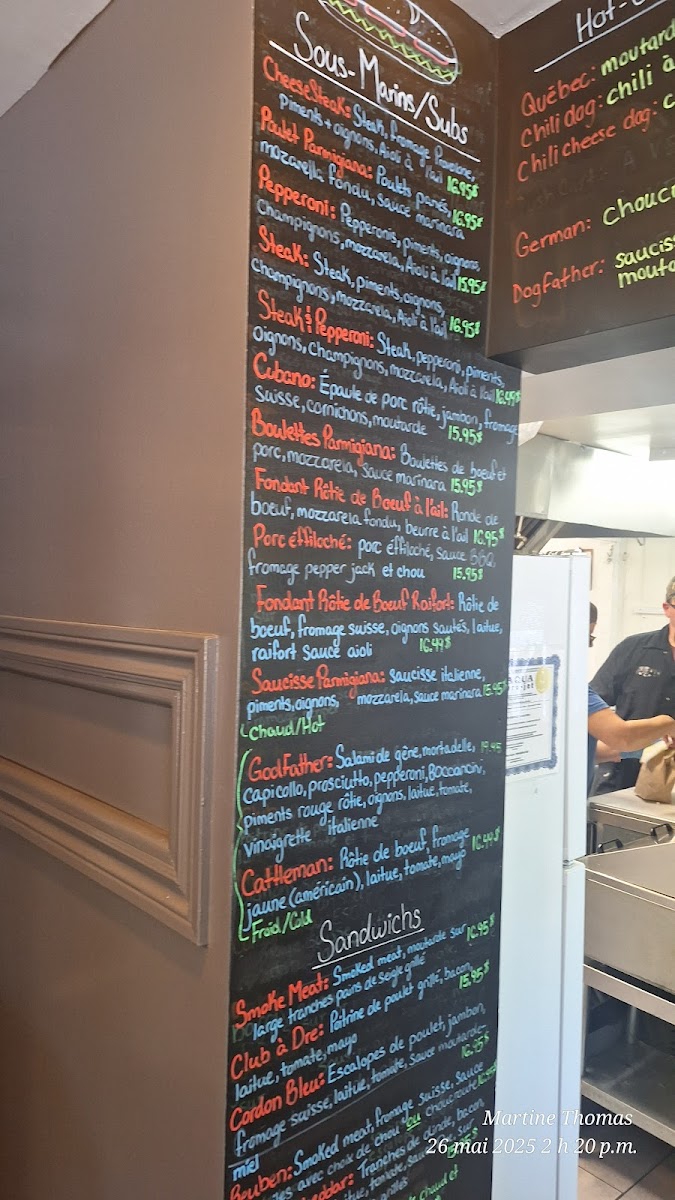 Sous-Marins/Subs
CheeseSteak: Steak, fromage Provolone,
piments + oignons, Aioli à l'ail 16.95$
Poulet Parmigiana: Poulets panés,
mozarella fondu, sauce marinara 16.95$
Pepperoni: Pepperonis, piments, oignons,
champignons, mozzarela, Aioli à l'ail 15.95$
Steak: Steak, piments, oignons,
champignons, mozzarela, Aioli à l'ail 16.95$
Steak & Pepperoni: Steak, pepperoni, piments,
oignons, champignons, mozzarela, Aioli à l'ail 16.49$
Cubano: Épaule de porc rôtie, jambon, fromage
Suisse, cornichons, moutarde 15.95$
Boulettes Parmigiana: Boulettes de boeuf et
porc, mozzarela, sauce marinara 15.95$
Fondant Rôtie de Boeuf à l'ail: Ronde de
boeuf, mozzarela fondu, beurre à l'ail 16.95$
Porc éffiloché: porc éffiloché, sauce BBQ,
fromage pepper jack et chou 15.95$
Fondant Rôtie de Boeuf Raifort: Rôtie de
boeuf, fromage suisse, oignons sautés, laitue,
raifort sauce aioli 16.49$
Saucisse Parmigiana: saucisse italienne,
piments, oignons, mozzarela, sauce marinara 15.95$
Chaud/Hot
GodFather: Salami de gêne, mortadelle, 19.95
capicollo, prosciutto, pepperoni, Boccancini,
piments rouge rôtie, oignons, laitue, tomate,
vinaigrette italienne
Cattleman: Rôtie de boeuf, fromage 16.49$
jaune (américain), laitue, tomate, mayo
Froid/Cold
Sandwichs
Smoke Meat: Smoked meat, moutarde sur 16.95$
large tranches pains de seigle grillé
Club à Dre: Poitrine de poulet grillé, bacon, 15.95$
laitue, tomate, mayo
Cordon Bleu: Escalopes de poulet, jambon,
fromage suisse, laitue, tomate, sauce moutarde-
miel
Reuben: Smoked meat, fromage suisse, sauce
avec choix de chou ou choucroute
Tranches de dinde, bacon,
tomate
chaud et
Hot-
Québec: moutard
Chili dog: chili à
Chili cheese dog: c
German: chouc
DogFather: sauciss
mouta
AQUA
Martine Thomas
26 mai 2025 2 h 20 p.m.